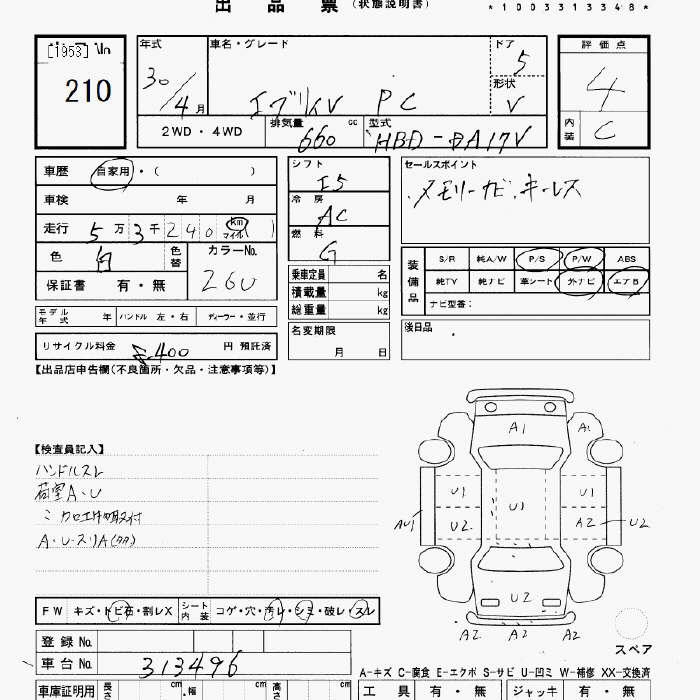 出品票(状態説明書)
*1003313348*
[1953]
210
年式 車名・グレード ドア 評価点
30/4月 エブリイV PC 5 4
形状 V
2WD・4WD 排気量 cc 660 型式 HBD-DA17V 内装 C
車歴 自家用・( )
車検 年 月
走行 5万3千240 (km マイル)
色 白 色替 カラーNo. 26U
保証書 有・無
モデル年式 年 ハンドル 左・右 ディーラー・並行
リサイクル料金 8,400 円 預託済
シフト I5
冷房 AC
燃料 G
乗車定員 名
積載量 kg
総重量 kg
名変期限
月 日
セールスポイント
メモリーナビ.キーレス
装備品
S/R 純A/W P/S P/W ABS
純TV 純ナビ 革シート 外ナビ エアB
ナビ型番:
後日品
【出品店申告欄(不良箇所・欠品・注意事項等)】
【検査員記入】
ハンドルスレ
荷室A・U
A・U・スリA(タタ)
A1
A1
U1 U1 U1
AU1 U2 A2 U2
U2
A2 A2 A2
スペア
FW キズ・トビ石・割レX シート内装 コゲ・穴・汚レ・シミ・破レ・スレ
登録No.
車台No. 313496
A-キズ C-腐食 E-エクボ S-サビ U-凹ミ W-補修 XX-交換済
車庫証明用 長さ cm 幅 cm 高さ cm
工具 有・無 ジャッキ 有・無